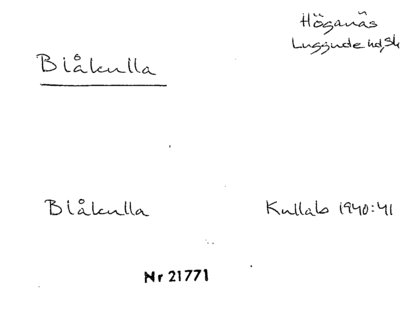 Höganäs
Luggude hd, Sk
Blåkulla
Blåkulla Kullab 1940:41
Nr 21771